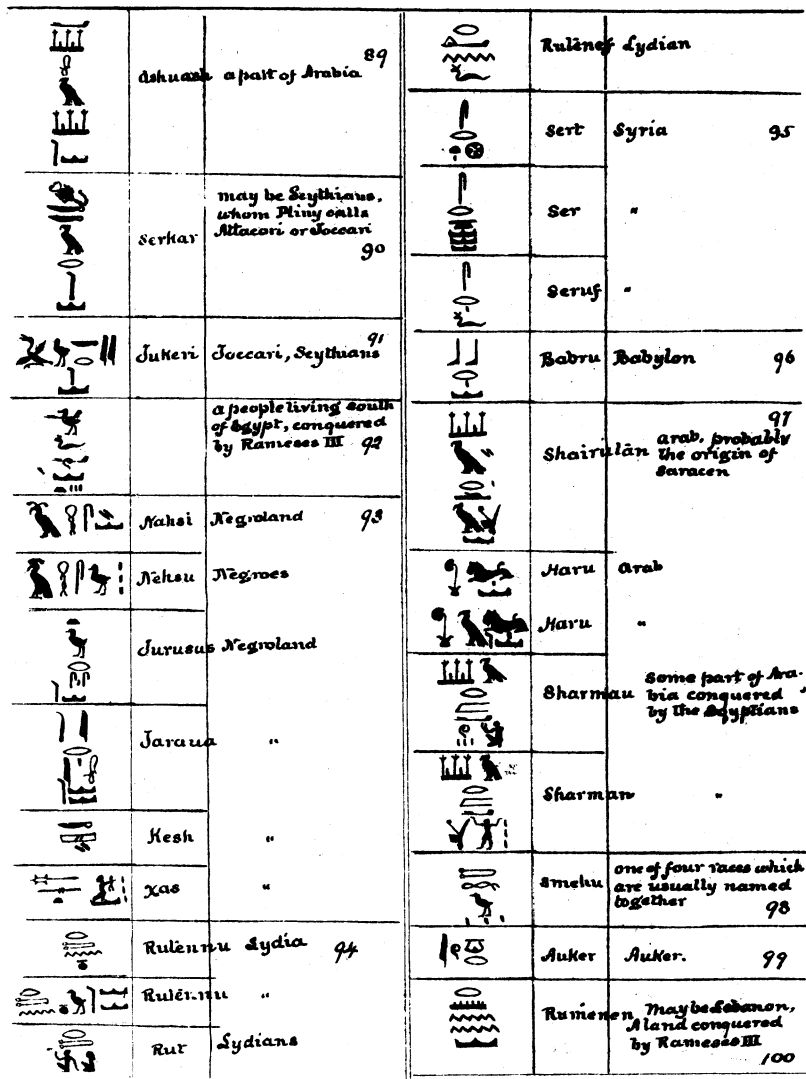 Ashuash a part of Arabia 89
Serkar may be Scythians,
whom Pliny calls
Attacori or Toccari
90
Tukeri Toccari, Scythians 91
a people living south
of Egypt, conquered
by Rameses III 92
Nahsi Negroland 93
Nehsu Negroes
Turusus Negroland
Taraua "
Kesh "
Kas "
Rutennu Lydia 94
Rutennu "
Rut Lydians
Rutenef Lydian
Sert Syria 95
Ser "
Seruf "
Babru Babylon 96
97
Shairutān Arab, probably
the origin of
Saracen
Haru Arab
Haru "
Sharmau Some part of Ara-
bia conquered
by the Egyptians
Sharman "
Smehu one of four races which
are usually named
together
98
Auker Auker. 99
Ramenen May be Lebanon,
A land conquered
by Rameses III
100